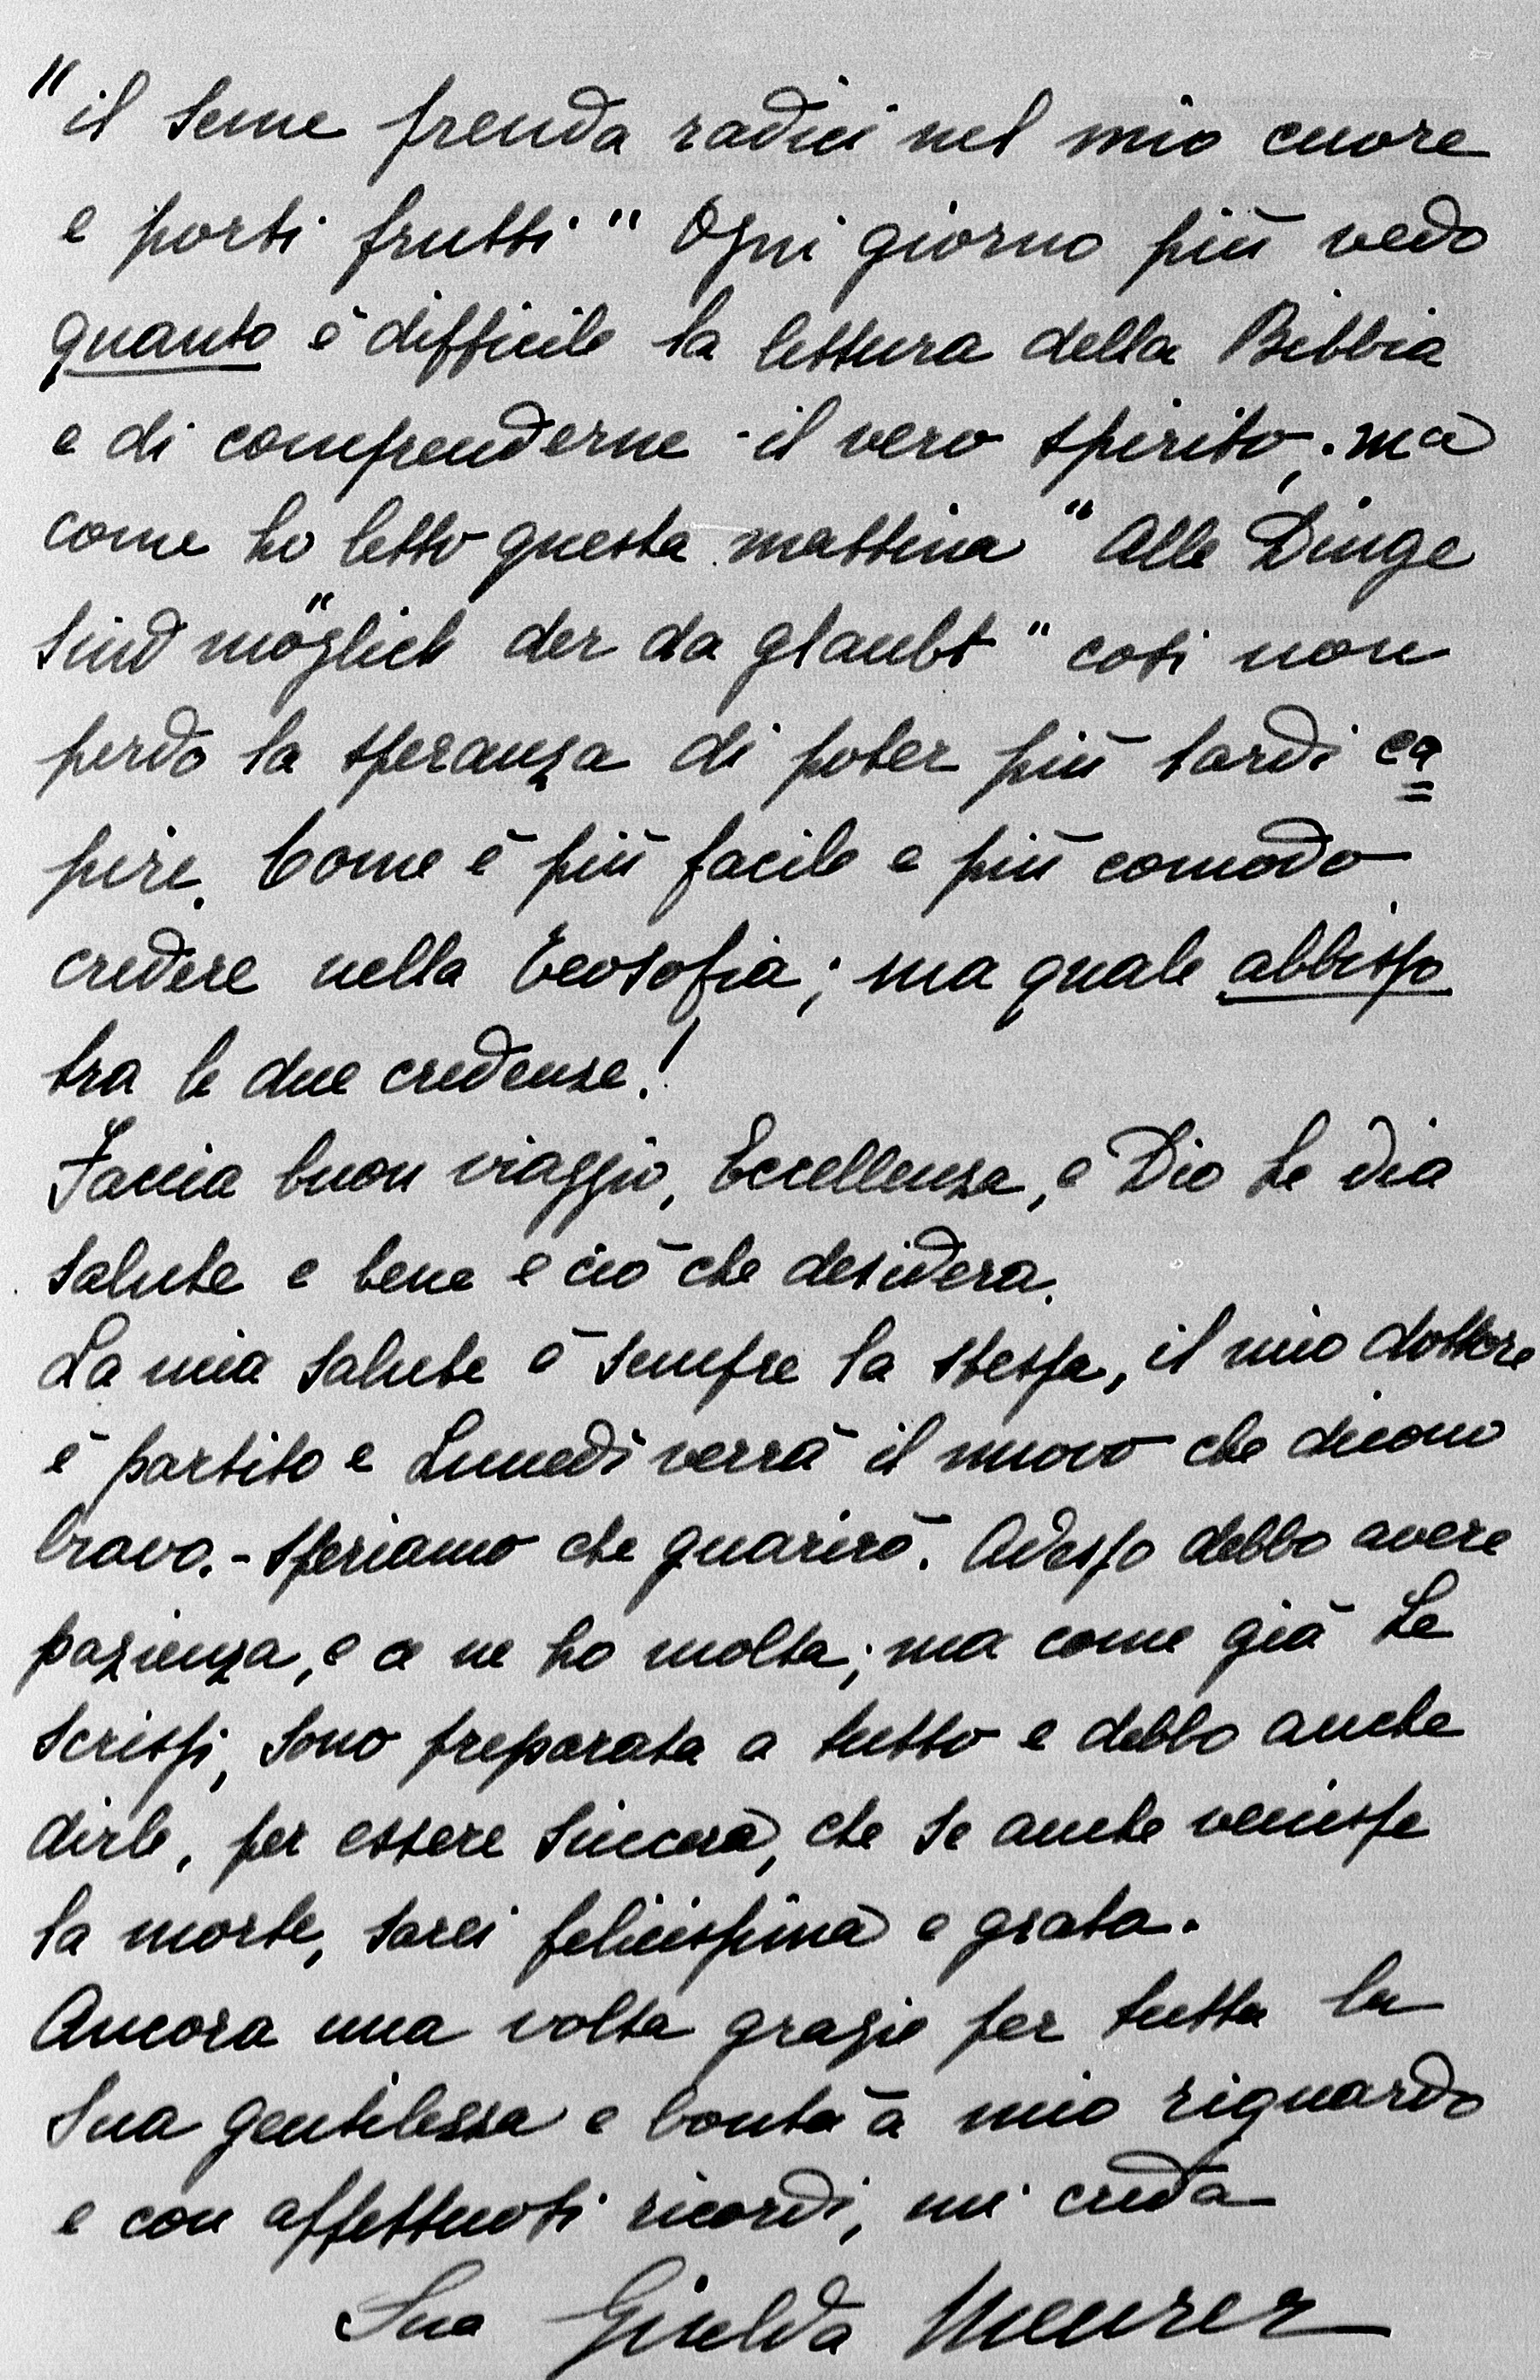 "il seme prenda radici nel mio cuore
e porti frutti" Ogni giorno più vedo
quanto è difficile la lettura della Bibbia
e di comprenderne il vero spirito, ma
come ho letto questa mattina "Alle Dinge
sind möglich der da glaubt" così non
perdo la speranza di poter più tardi ca
pire. Come è più facile e più comodo
credere nella Teosofia; ma quale abbisso
tra le due credenze!
Faccia buon viaggio, Eccellenza, e Dio Le dia
salute e bene e ciò che desidera.
La mia salute è sempre la stessa, il mio dottore
è partito e Lunedì verrà il nuovo che dicono
bravo. - Speriamo che guarirò. Adesso debbo avere
pazienza, e ce ne ho molta; ma come già Le
scrissi, sono preparata a tutto e debbo anche
dirle, per essere sincera, che se anche venisse
la morte, sarei felicissima e grata.
Ancora una volta grazie per tutta la
Sua gentilezza e bontà a mio riguardo
e con affettuosi ricordi, mi creda
Sua Giselda Meurer